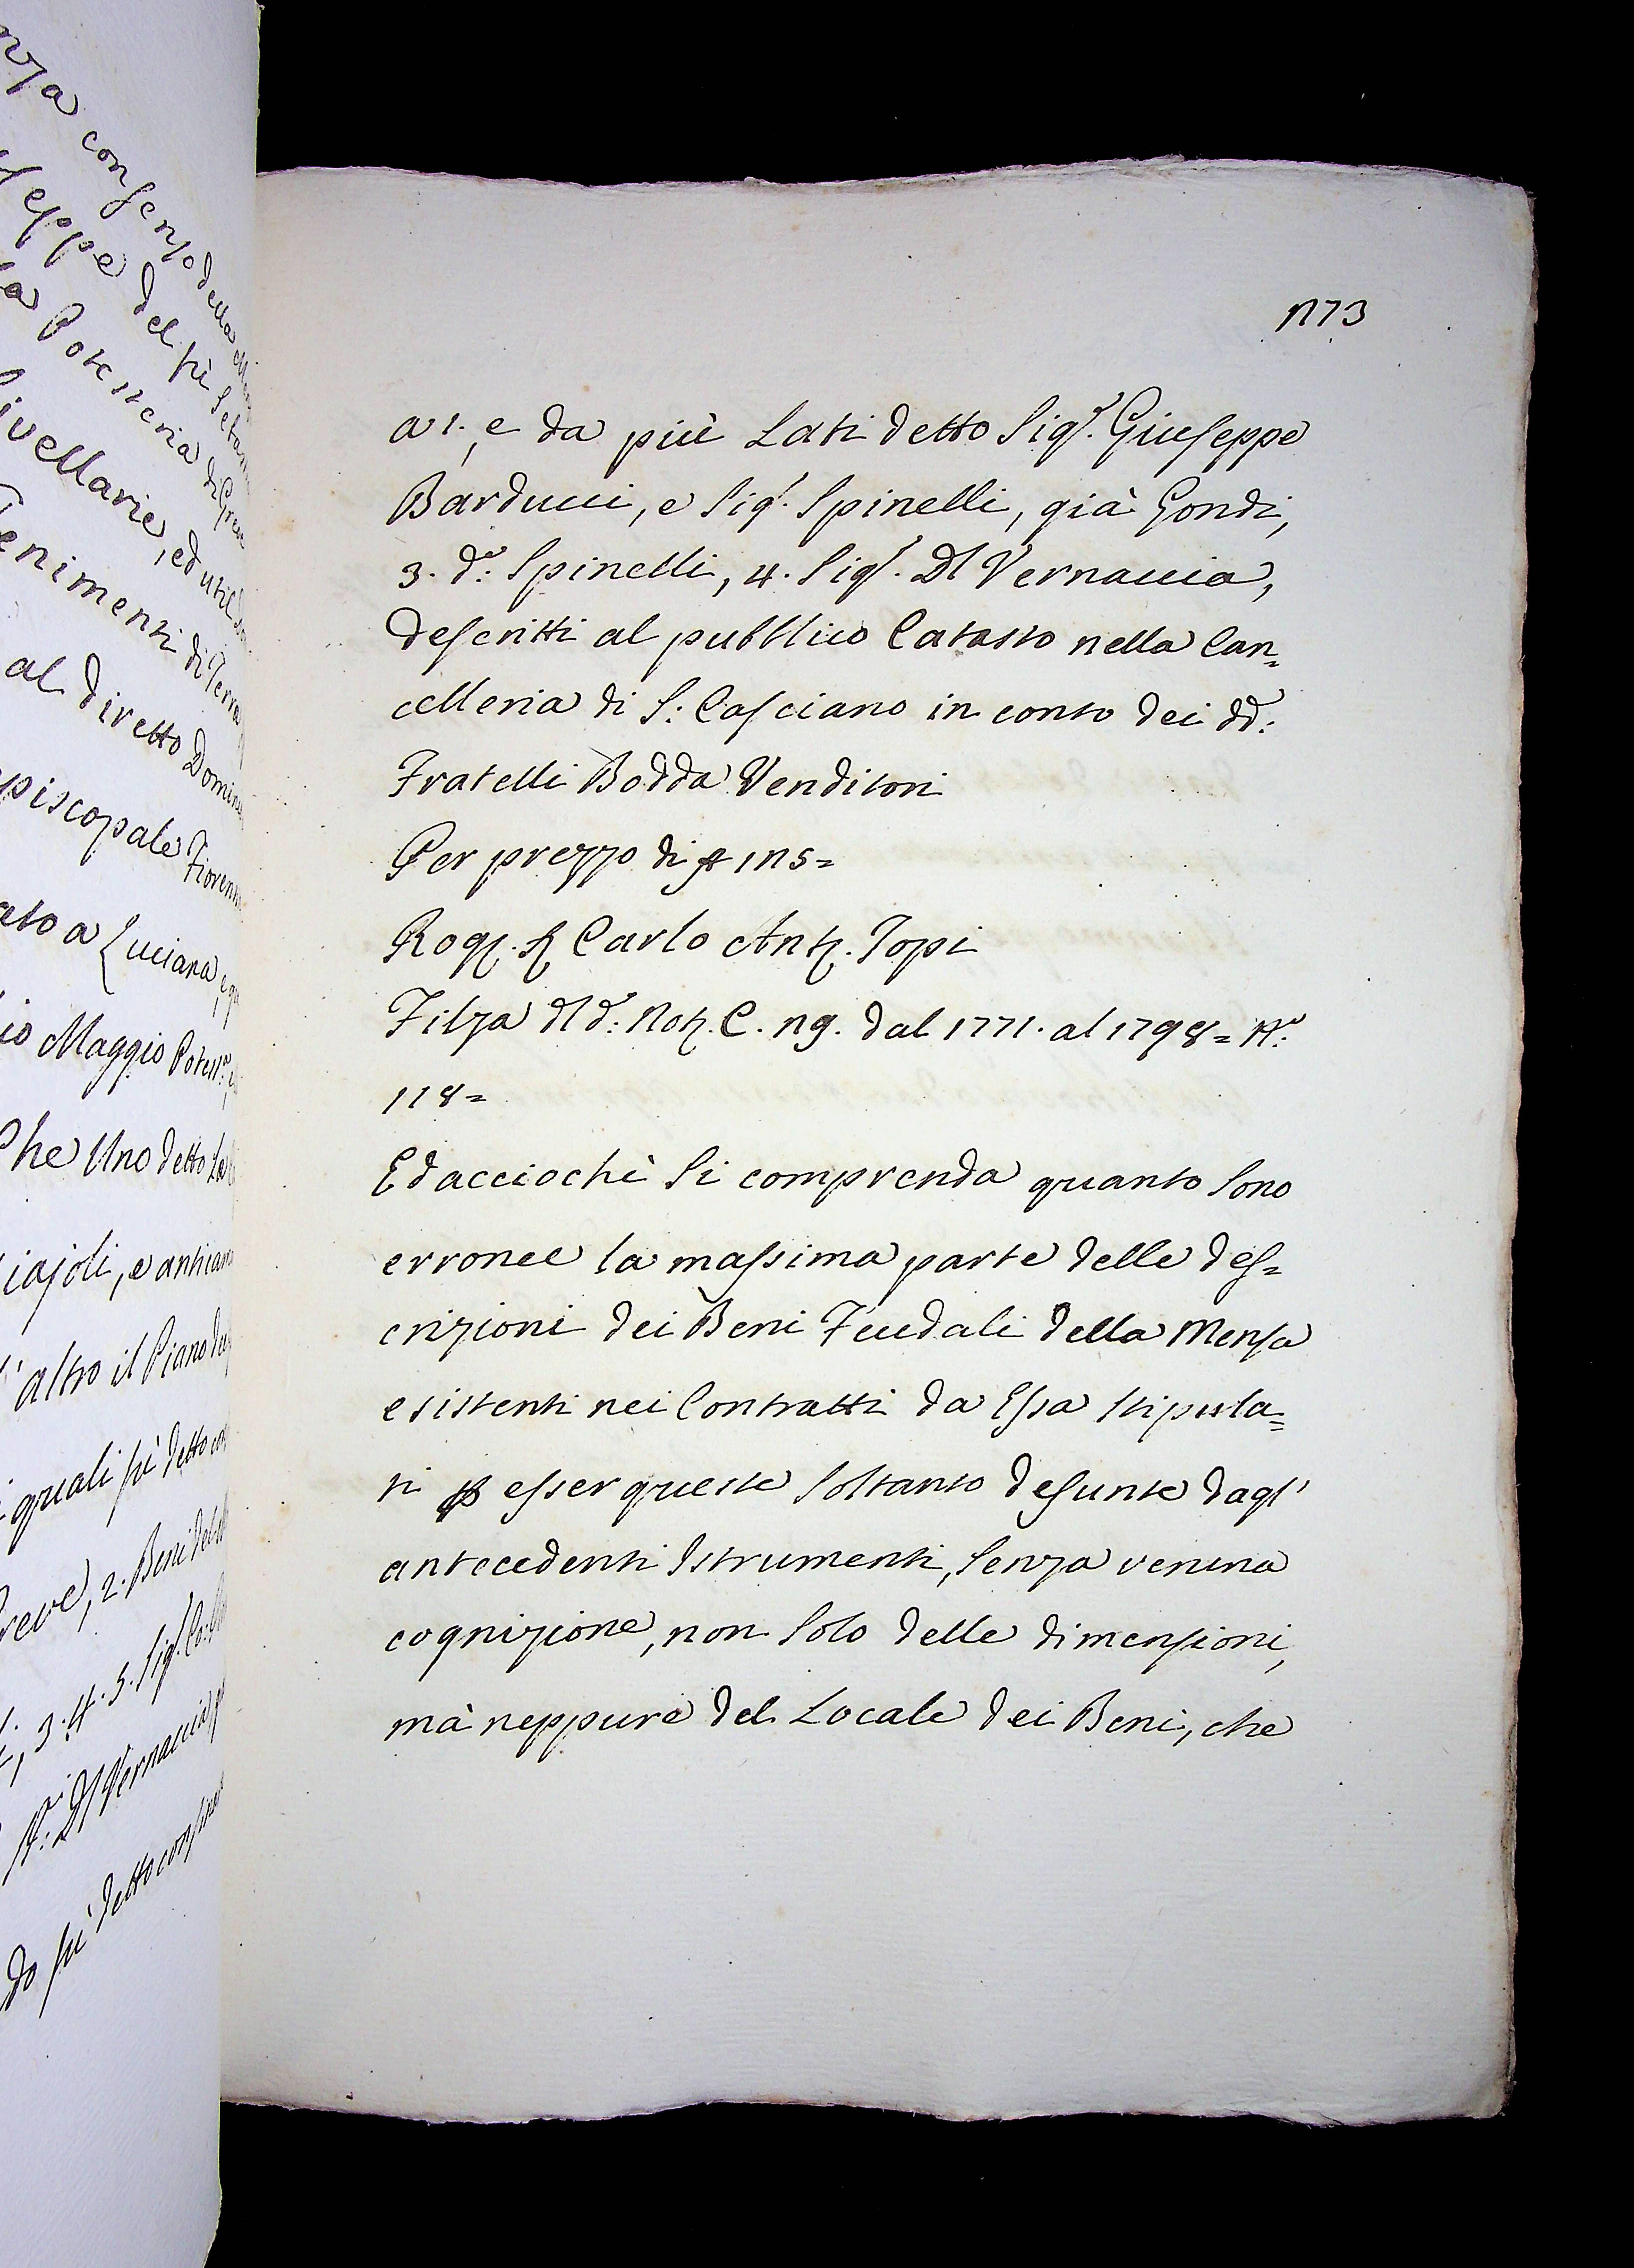 1173
a 1., e da più Lati detto Sigr. Giuseppe
Barducci, e Sigr. Spinelli, già Gondi,
3. do: Spinelli, 4. Sigr. Dl Vernaccia,
descritti al pubblico Catasto nella Can=
celleria di S: Casciano in conto dei dd:
Fratelli Bodda Venditori
Per prezzo di
Rog. Carlo Ant. Topi
Filza dl do: Not. C. ng. dal 1771. al 1798= No:
118=
Ed acciochè si comprenda quanto sono
erronee la massima parte delle des=
crizioni dei Beni Feudali della Mensa
esistenti nei Contratti da Essa stipula=
ti p esser queste soltanto desunte dagl'
antecedenti Istrumenti, senza veruna
cognizione, non solo delle dimensioni,
mà neppure del Locale dei Beni, che
nza consenso della
seppe del fù
la Potesteria di Greve
ivellarie, ed util
enimenti di Terra
al diretto Domin
piscopale Fiorent
ato a Luciana,
io Maggio
Che Uno detto
iajoli, e antica
l'altro il Piano
quali fù detto
reve, 2. Beni del
3. 4. 5. Sigr.
Dl Vernaccia
do fù detto